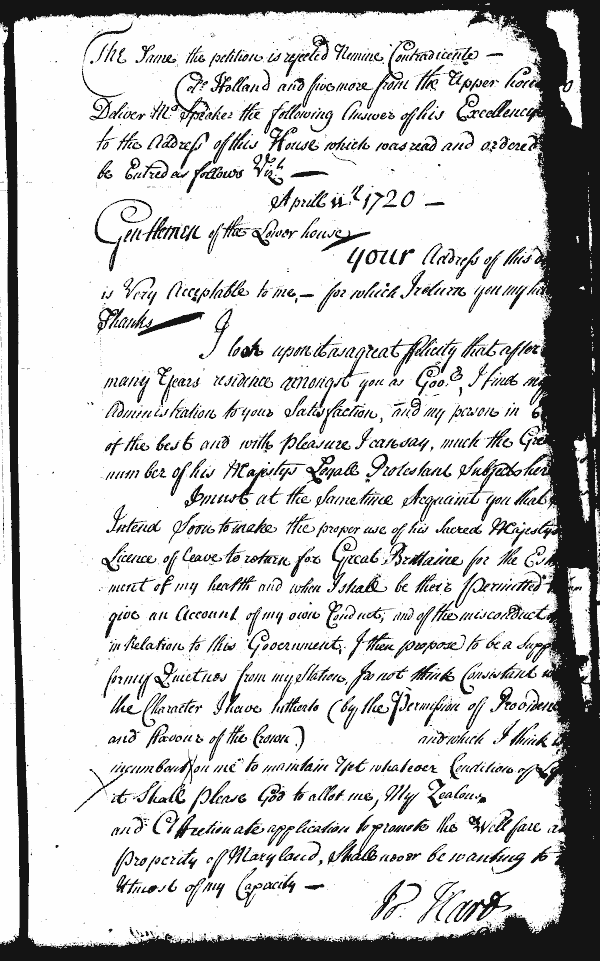 The Same the petition is rejected Nemine Contradicente —
Col.o Holland and five more from the Upper house
Deliver Mr Speaker the following Answer of his Excellency
to the Address of this House which was read and ordered
be Entred as follows Viz.t —
Aprill 11.th 1720 —
Gentlemen of the Lower house
your Address of this
is Very Acceptable to me, — for which I return you my
Thanks
I look upon it as a great felicity that after
many Years residence amongst you as Gov.r, I find my
Administration to your Satisfaction, and my person in
of the best and with pleasure I can say, much the
number of his Majestys Loyall Protestant Subjects
I must at the Same time Acquaint you that
Intend Soon to make the proper use of his Sacred Majestys
Licence of leave to return for Great Brittaine for the
ment of my health and when I shall be their Permitted
give an Account of my own Conduct, and of the misconduct
in Relation to this Government. I then propose to be a
for my Quietus from my Station, Do not think Consistant
the Character I have hitherto (by the Permission of
and Favour of the Crown) and which I think
incumbent on me to maintain Yet whatever Condition of
it Shall please God to allot me, My Zealous
and Affectionate application to promote the Wellfare
Properity of Maryland, Shall never be wanting to
Utmost of my Capacity —
Jo. Hart